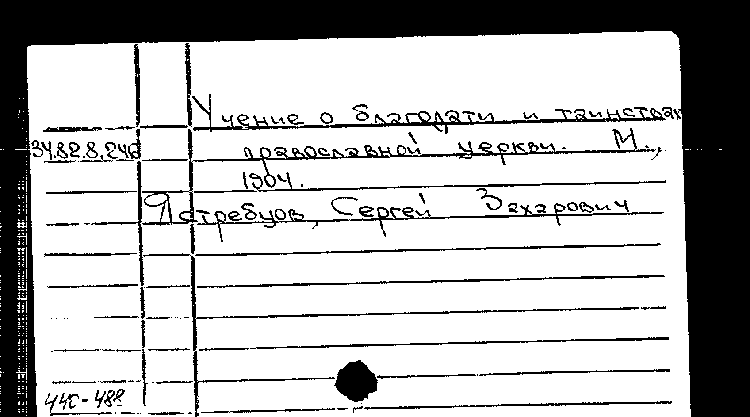 Учение о благодати и таинствах
34.82.8.246 православной церкви. М.,
1904.
Ястребцов, Сергей Захарович
44С-488